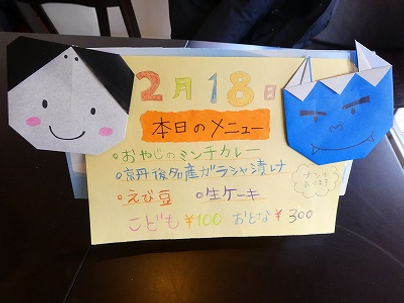 2月18日
本日のメニュー
●おやじのミンチカレー
●京丹後名産ガラシャ漬け
●えび豆 ●生ケーキ
こども ¥100 おとな ¥300